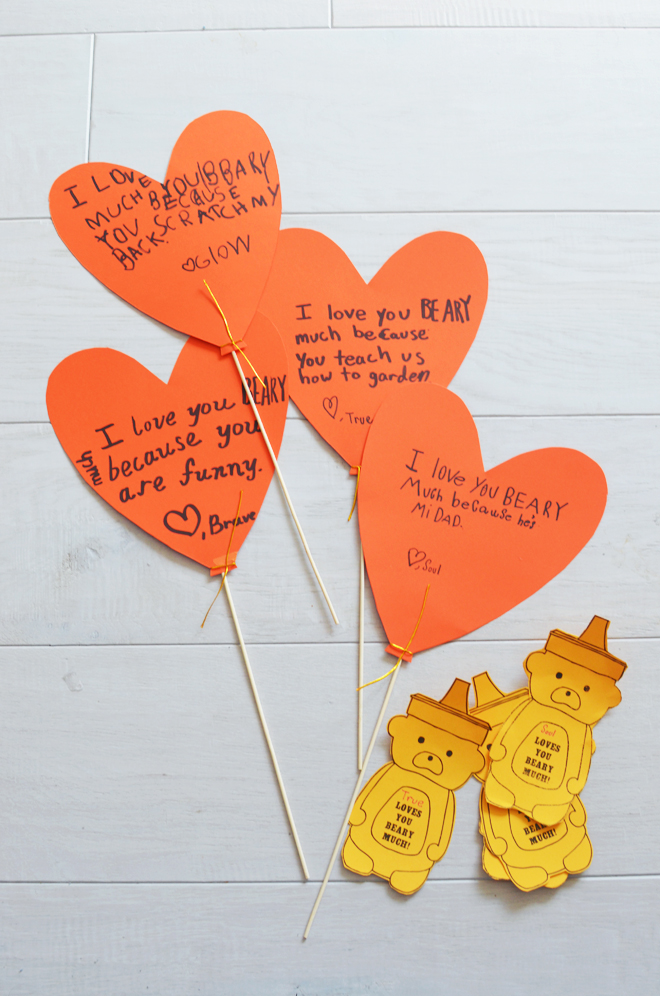 I LOVE YOU BEARY
MUCH BECAUSE
YOU SCRATCH MY
BACK.
♡GlOW
I love you BEARY
much because
You teach us
how to garden
♡, True
I love you BEARY
much because you
are funny.
♡, Brave
I love YOU BEARY
Much because he's
Mi DAD.
♡, Soul
True
LOVES
YOU
BEARY
MUCH!
Soul
LOVES
YOU
BEARY
MUCH!
MUCH!